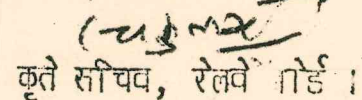 कृते सचिव, रेलवे बोर्ड ।